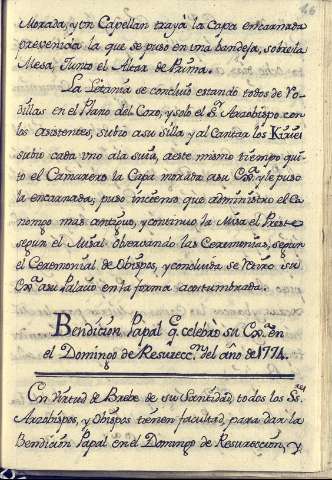 Morada, y un Capellan traya la Capa encarnada
prevenida la que se puso en una bandeja, sobre la
Mesa, Junto el Altar de Prima.
La Letania se concluió estando todos de Ro-
dillas en el Plano del Coro, y solo el Sr. Arzobispo con
los asistentes, subió a su silla, y al Cantar los Kiries
subio cada uno a la suia, a este mismo tiempo qui-
to el Camarero la Capa morada a su Exa. y le puso
la encarnada; puso incienso que administro el Ca-
nonigo mas antiguo, y continuo la Misa el Preste
segun el Misal observando las Ceremonias, segun
el Ceremonial de Obispos, y concluida se retiro su
Exa. a su Palacio en la forma acostumbrada.
Bendicion Papal q. celebró su Exa. en
el Domingo de Resurecc.n del año de 1774.
En Virtud de Brebe de su Santidad, todos los Ss.res
Arzobispos, y Obispos tienen facultad, para dar la
Bendicion Papal en el Domingo de Resureccion, y